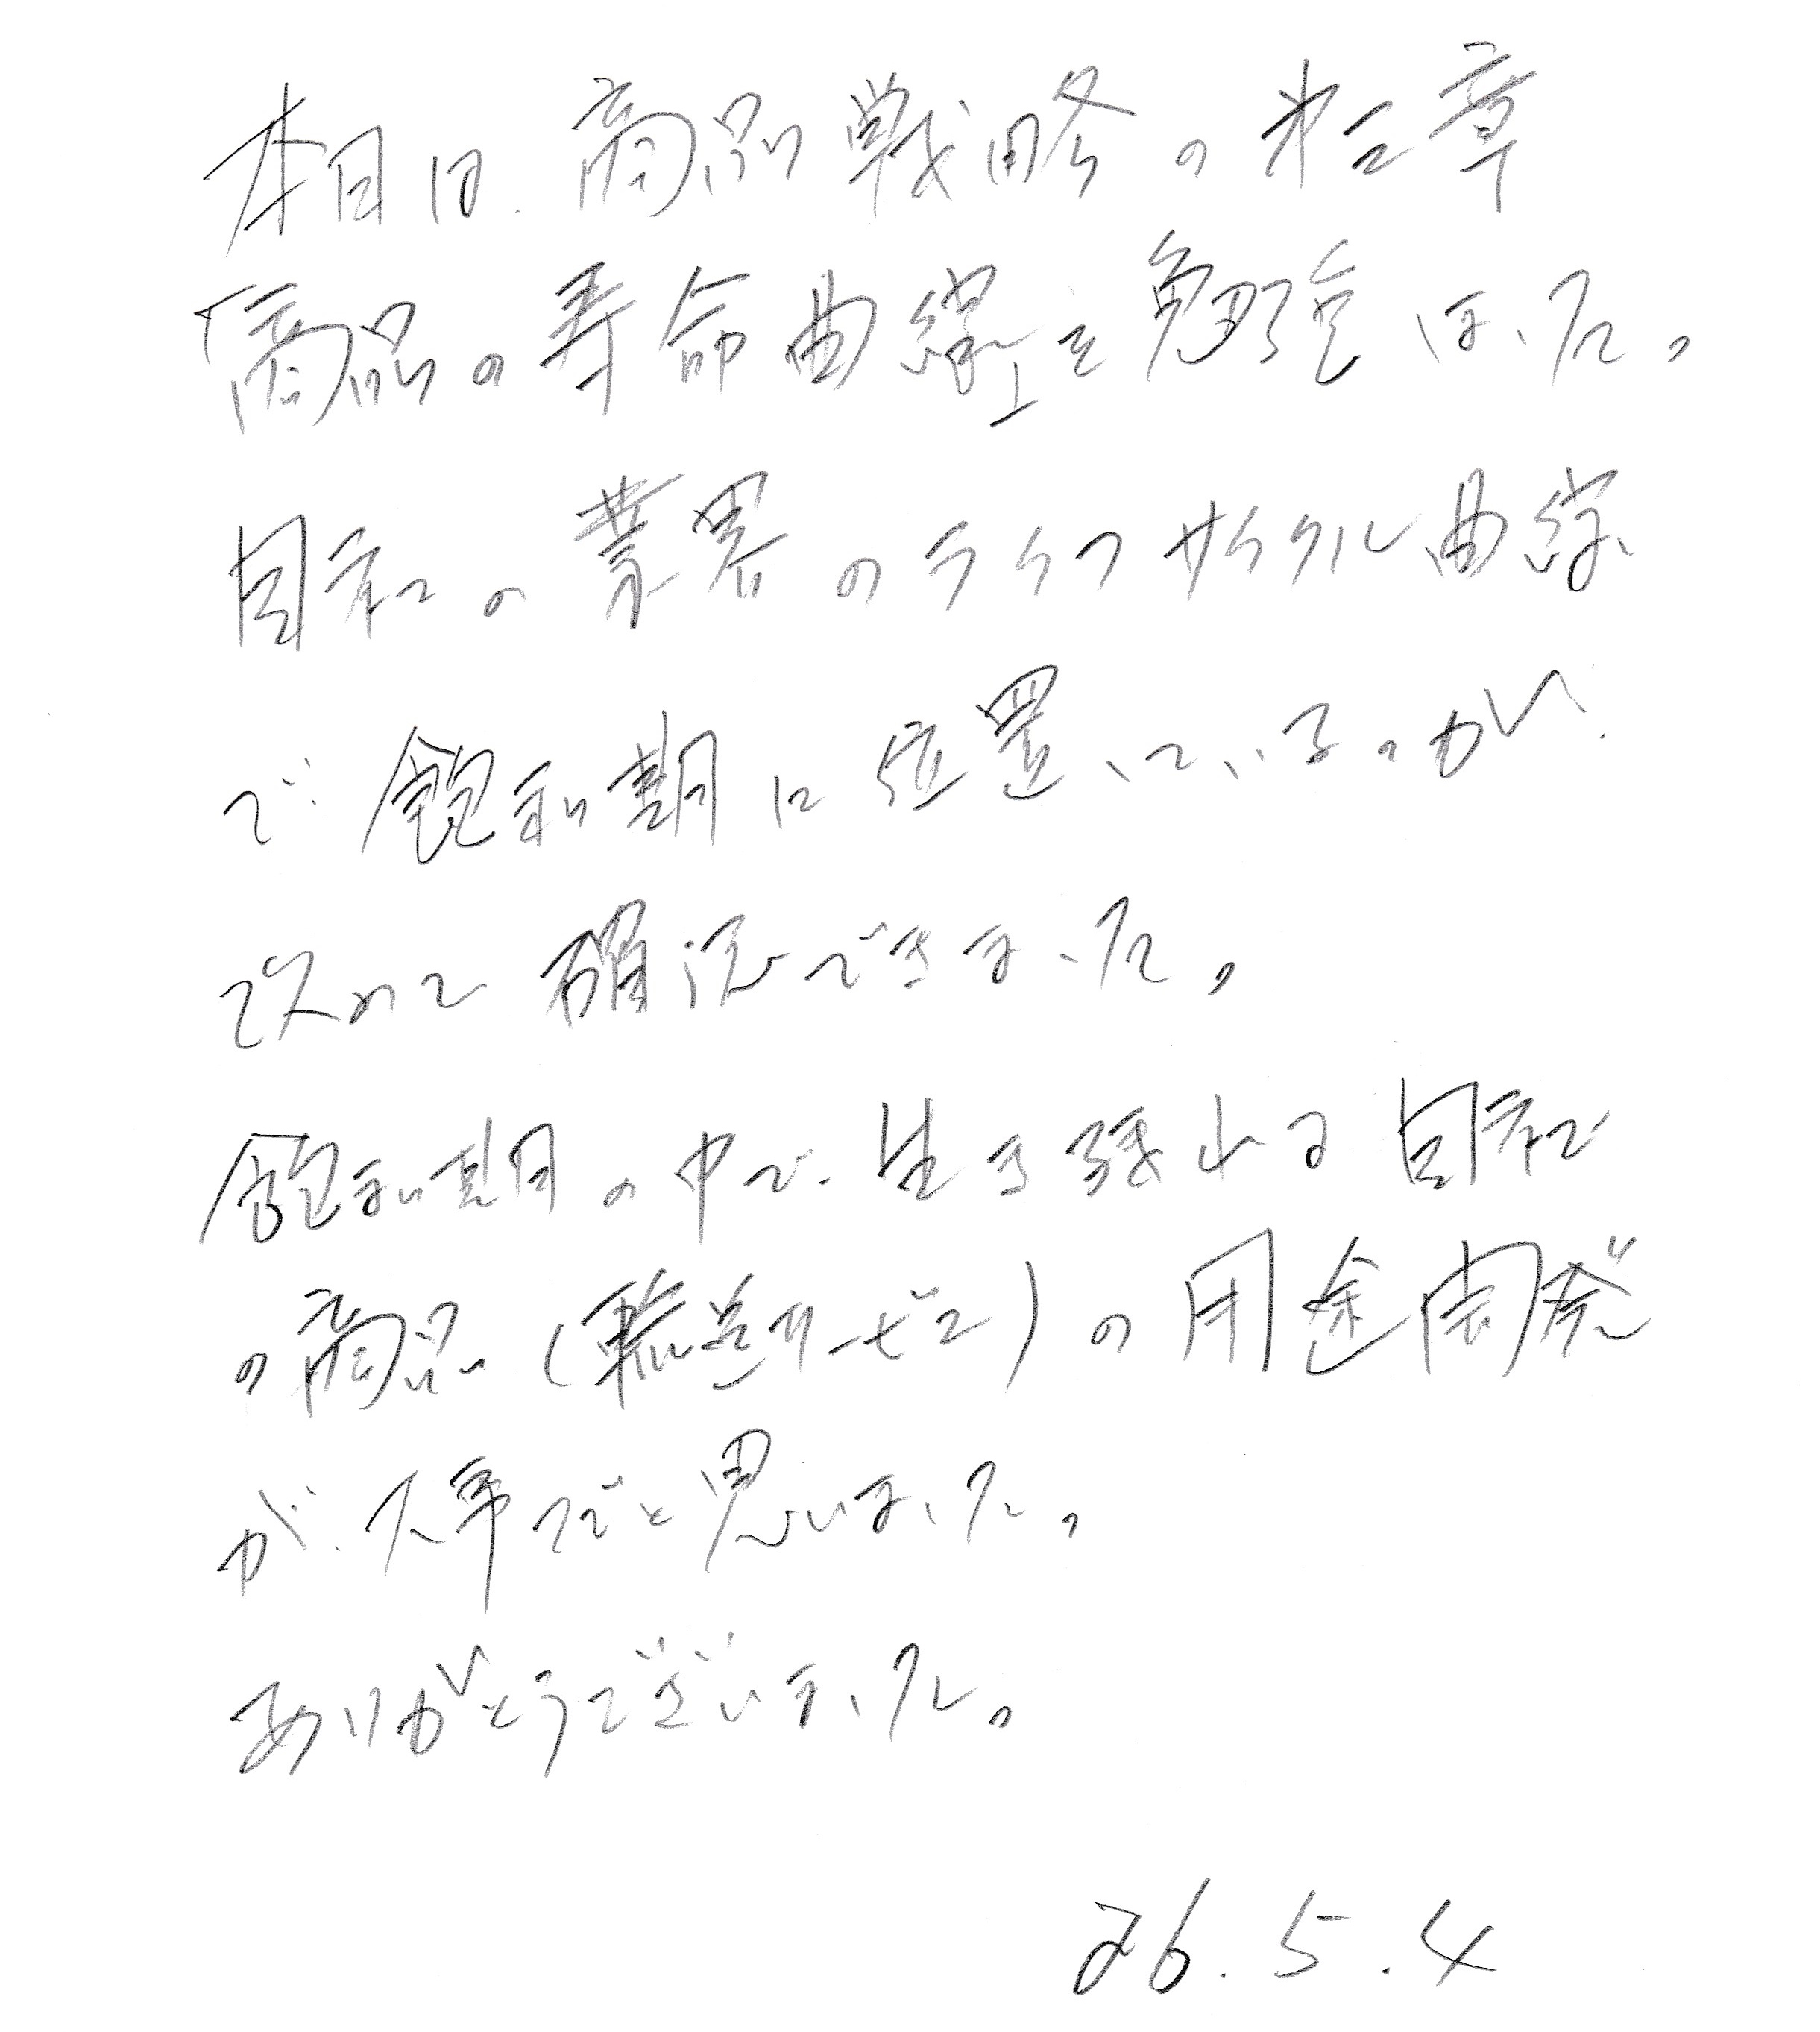 本日は、商品戦略の第二章
「商品の寿命曲線」を勉強しました。
自社の業界のライフサイクル曲線
で飽和期に位置しているのが
改めて確認できました。
飽和期の中で、生き残れる自社
の商品(輸送サービス)の用途開発
が、大事だと思いました。
ありがとうございました。
26.5.4